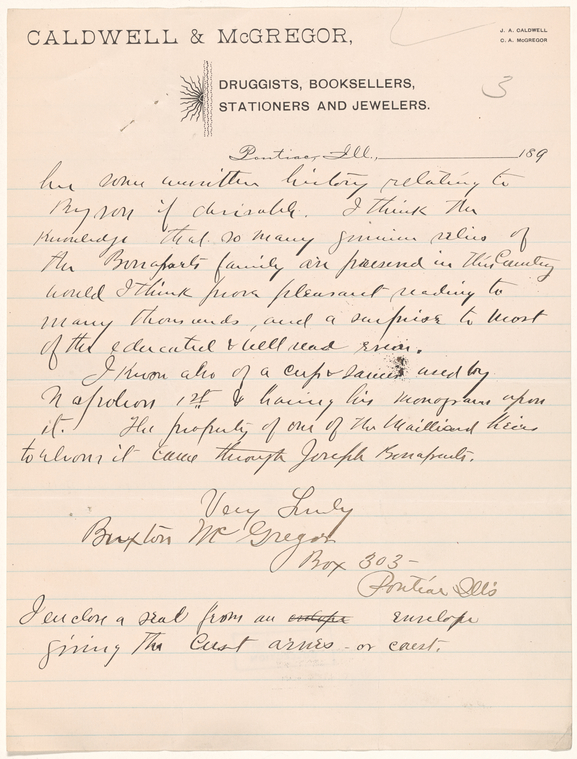 CALDWELL & McGREGOR,
J. A. CALDWELL
C. A. McGREGOR
3
DRUGGISTS, BOOKSELLERS,
STATIONERS AND JEWELERS.
Pontiac, Ill., 189
her some unwritten history relating to
Byron if desirable. I think the
Knowledge that so many genuine relics of
the Bonaparte family are preserved in this Country
would I think prove pleasant reading to
many thousands, and a surprise to most
of the educated & well read even.
I know also of a cup & saucer used by
Napoleon 1st & having his monogram upon
it. The property of one of the Mailliard heirs
to whom it came through Joseph Bonaparte.
Very Truly
Buxton McGregor
Box 303-
Pontiac Ills
I enclose a seal from an envelope
giving the arms - or crest.